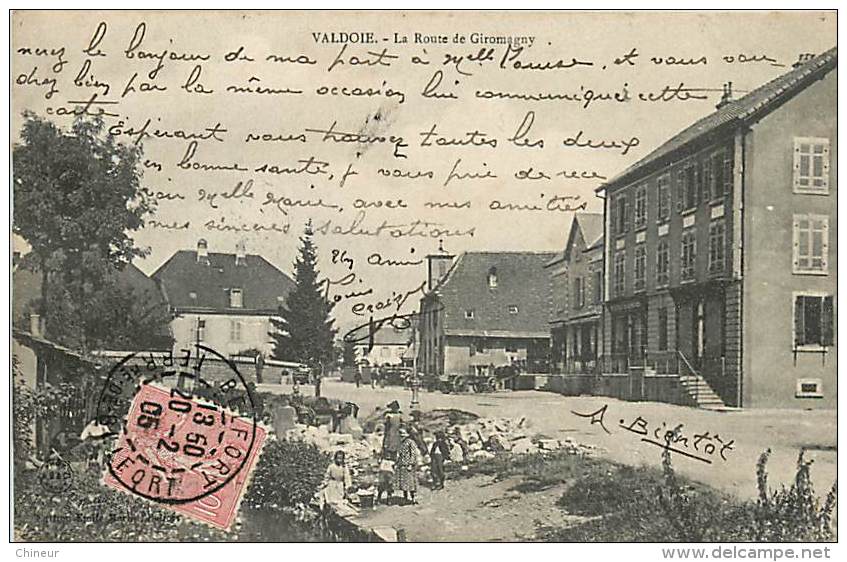 VALDOIE. - La Route de Giromagny
nerez le bonjour de ma part à Melle Louise, et vous vou
drez bien par la même occasion lui communiquer cette
carte Espérant vous trouvez toutes les deux
en bonne santé, je vous prie de rece
voir Melle Marie, avec mes amitiés
mes sincères salutations
Un ami
Louis
A Bientôt
BELFORT
13 50
20 - 2
05
BELFORT
10
Chineur
delcampe.net